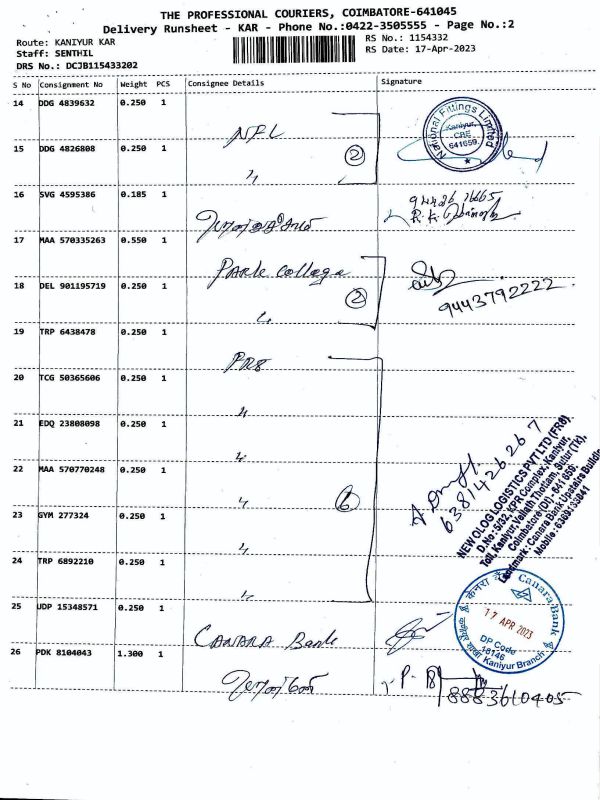 THE PROFESSIONAL COURIERS, COIMBATORE-641045
Delivery Runsheet - KAR - Phone No.:0422-3505555 - Page No.:2
Route: KANIYUR KAR
RS No.: 1154332
Staff: SENTHIL
RS Date: 17-Apr-2023
DRS No.: DCJB115433202
S No Consignment No Weight PCS Consignee Details Signature
14 DDG 4839632 0.250 1 NFL
National Fittings Limited
Kaniyur,
CBE
641659.
15 DDG 4826808 0.250 1 〃 ②
16 SVG 4595386 0.185 1
94426 16665
17 MAA 570335263 0.550 1 Park College
18 DEL 901195719 0.250 1 〃 ②
9443792222
19 TRP 6438478 0.250 1 FR8
20 TCG 50365606 0.250 1 〃
21 EDQ 23808098 0.250 1 〃
22 MAA 570770248 0.250 1 〃 ⑥
6381426267
23 GYM 277324 0.250 1 〃
24 TRP 6892210 0.250 1 〃
NEW OLOG LOGISTICS PVT LTD (FR8),
D.No: 5/32, KPR Complex, Kaniyur,
Toll, Kaniyur, Vellath Thottam, Sulur (Tk),
Coimbatore (Dt) - 641 659.
Landmark : Canara Bank Upstairs Building
25 UDP 15348571 0.250 1 CANARA Bank
केनरा बैंक Canara Bank
17 APR 2023
DP Code
16146
Kaniyur Branch
26 PDK 8104043 1.300 1
8883610405